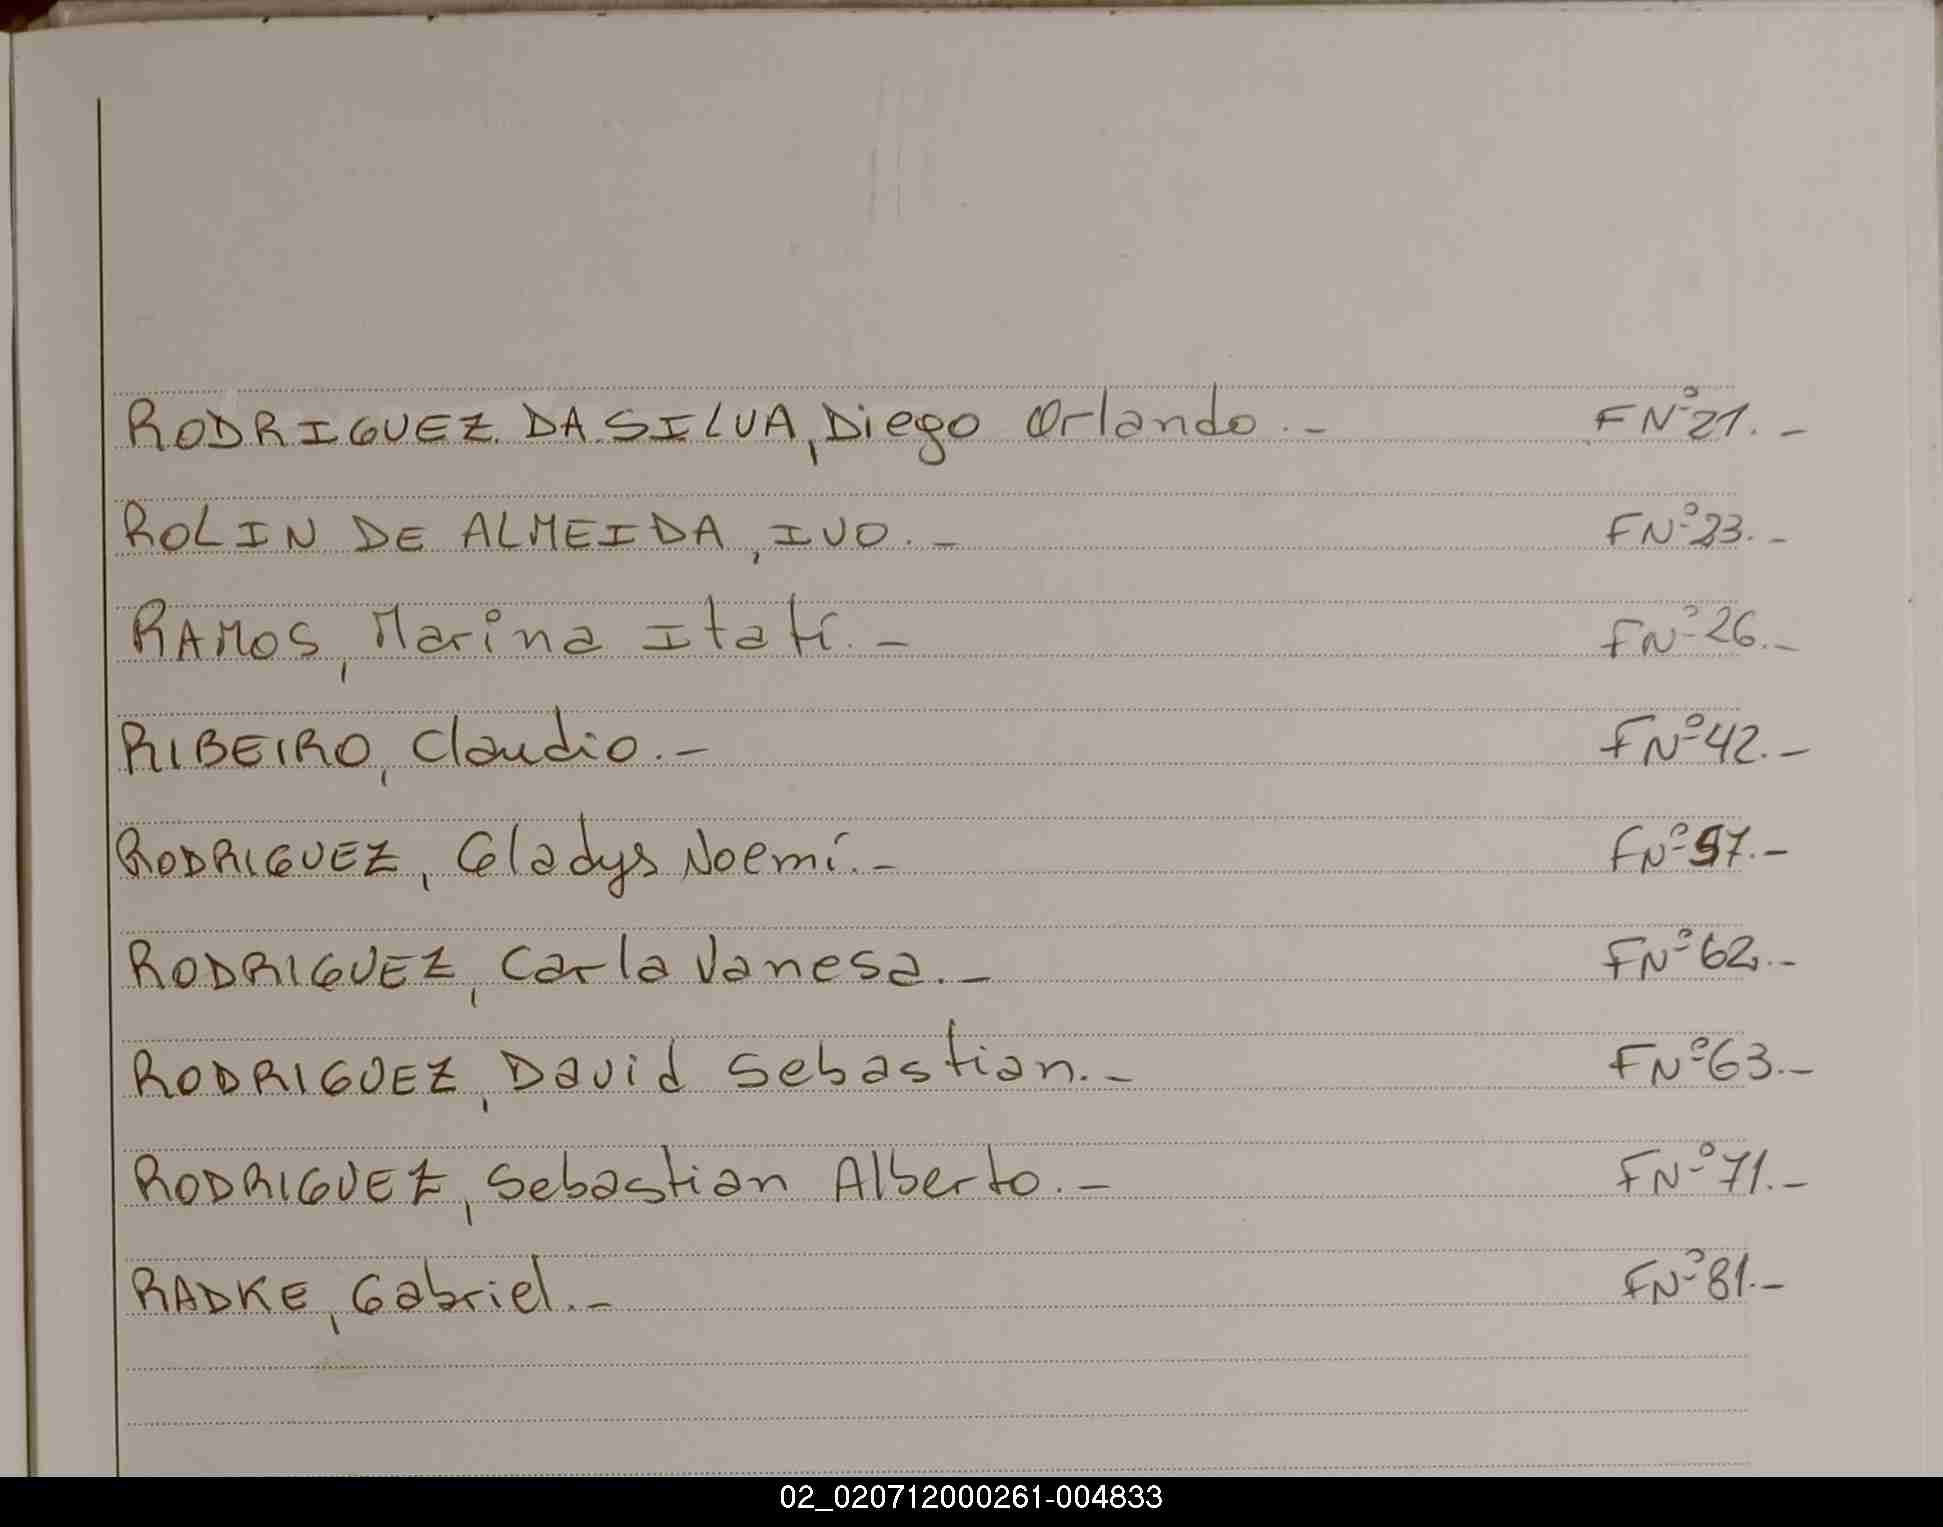 RODRIGUEZ DA SILVA, Diego Orlando.- FNº21.-
ROLIN DE ALMEIDA, IVO.- FNº23.-
RAMOS, Marina Itatí.- FNº26.-
RIBEIRO, Claudio.- FNº42.-
RODRIGUEZ, Gladys Noemí.- FNº57.-
RODRIGUEZ, Carla Vanesa.- FNº62.-
RODRIGUEZ, David Sebastian.- FNº63.-
RODRIGUEZ, Sebastian Alberto.- FNº71.-
RADKE, Gabriel.- FNº81.-
02_020712000261-004833